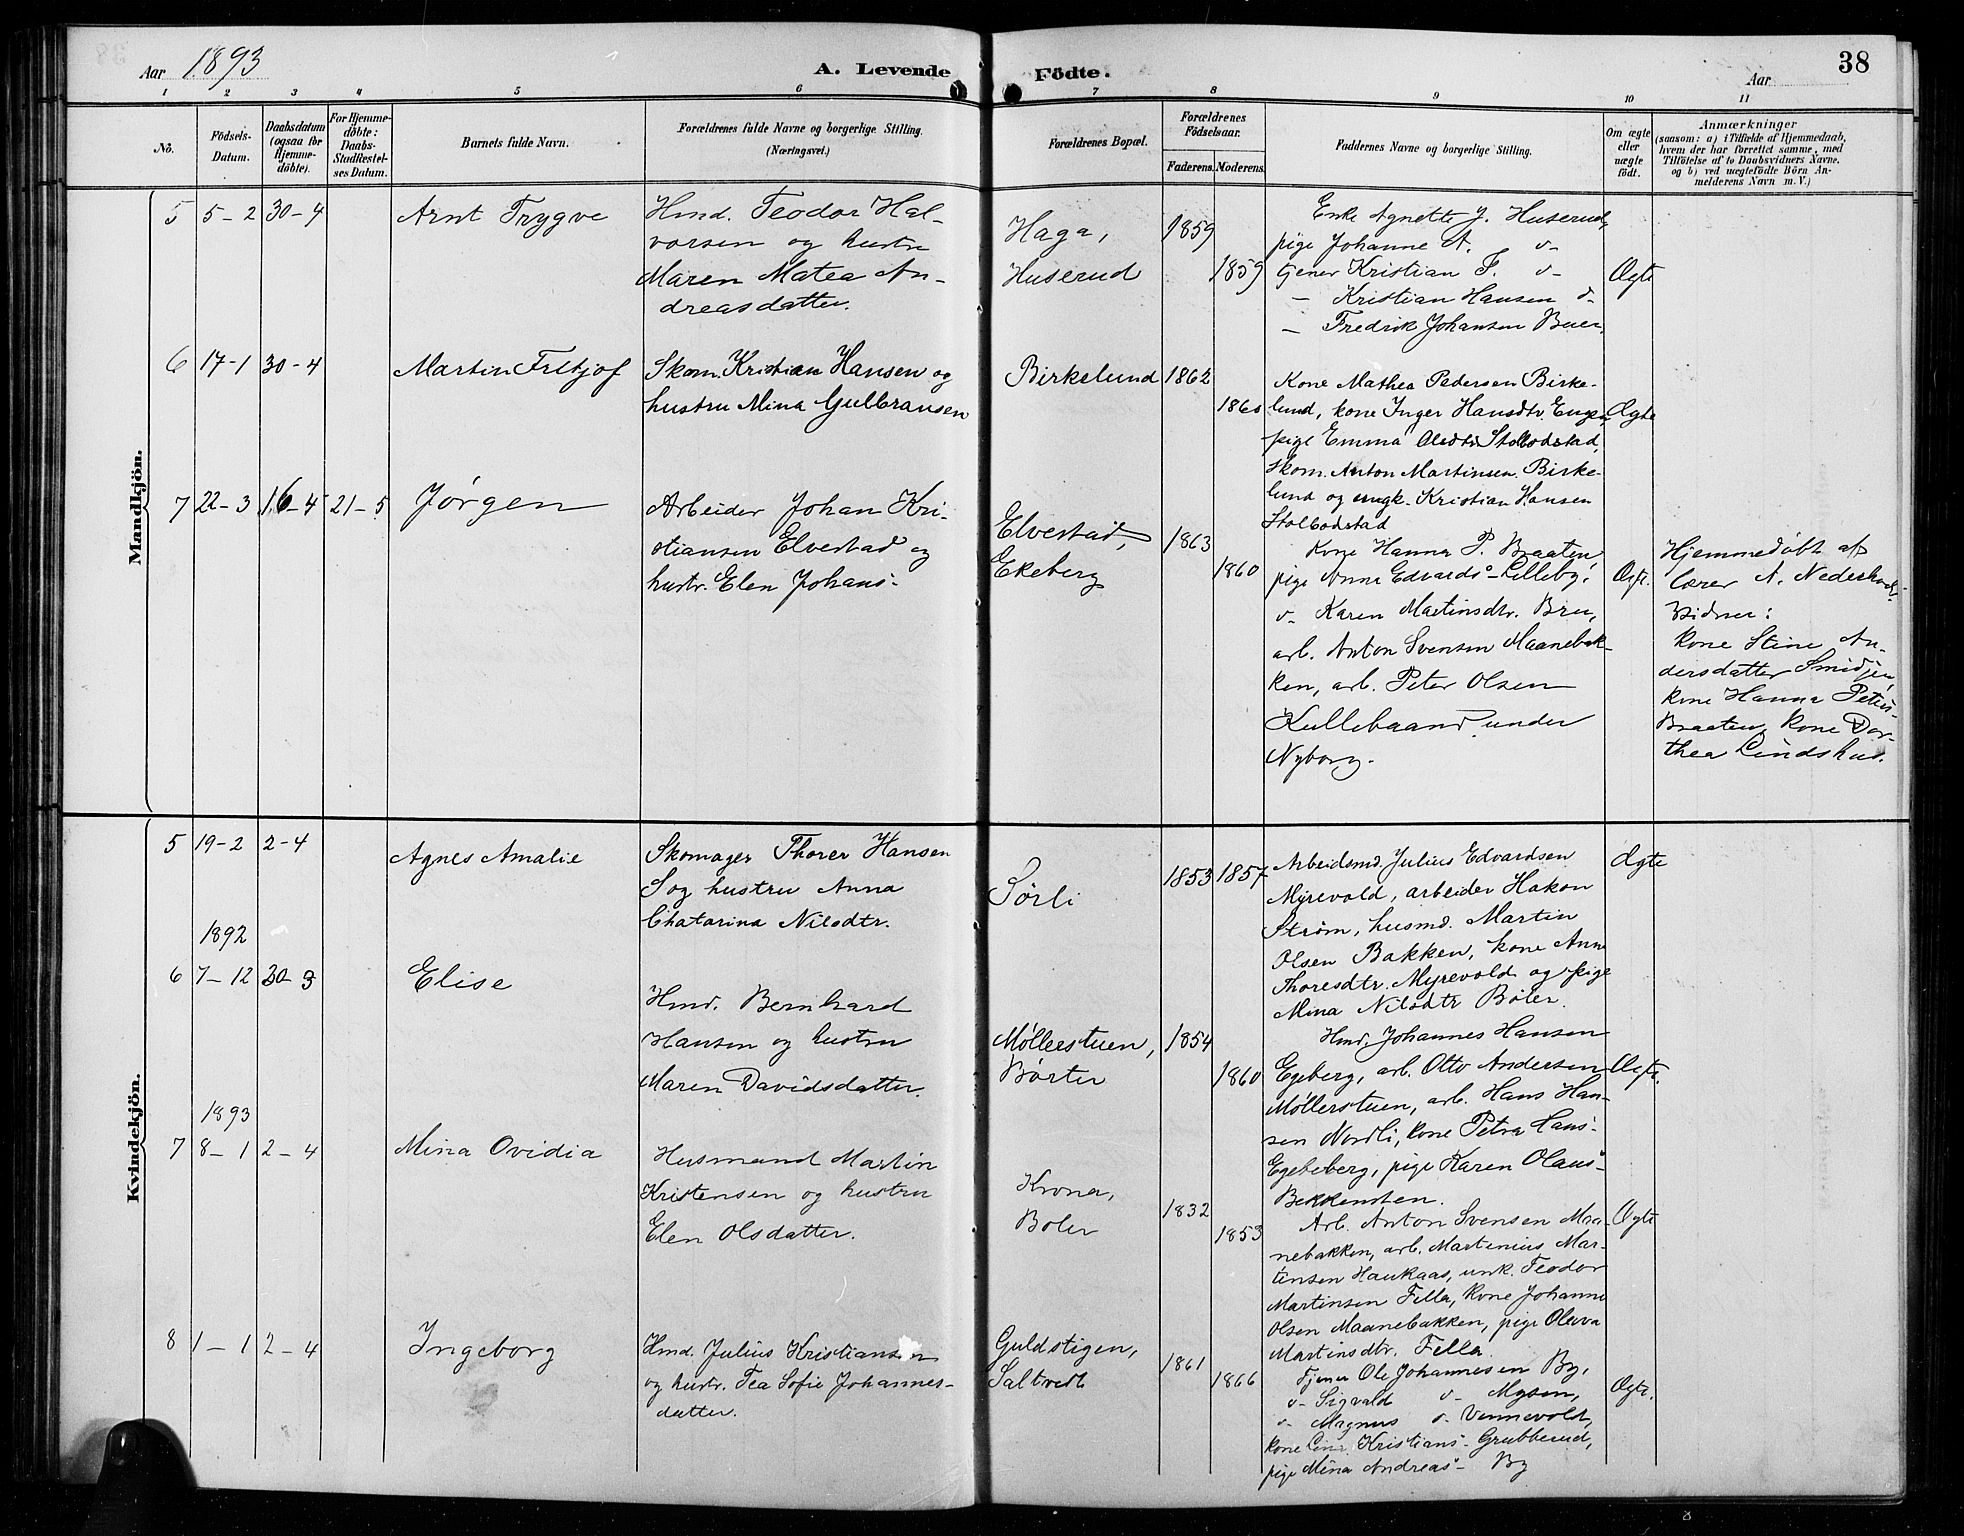 Aar 1893
A. Levende
Födte.
Aar
38
1 2 3 4 5 6 7 8 9 10 11
No.
Födsels-
Datum.
Daabsdatum
(ogsaa for
Hjemme-
döbte).
For Hjemme-
døbte:
Daabs-
Stadfestel-
ses Datum.
Barnets fulde Navn.
Forældrenes fulde Navne og borgerlige Stilling.
(Næringsvei.)
Forældrenes Bopæl.
Forældrenes
Födselsaar.
Faderens. Moderens.
Faddernes Navne og borgerlige Stilling.
Om ægte
eller
uægte
født.
Anmærkninger
(saasom: a) i Tilfælde af Hjemmedaab,
hvem der har forrettet samme, med
Tilføielse af to Daabsvidners Navne,
og b) ved uægtefödte Börn An-
melderens Navn m. V.)
Mandkjön.
5 5-2 30-4
Arnt Trygve
Hmd. Teodor Hal-
vorsen og hustru
Maren Matea An-
dreasdatter.
Haga,
Huserud
1859
1859
Enke Agnette J. Huserud,
pige Johanne A. v-
tjener Kristian F. v-
- Kristian Hansen v-
- Fredrik Johansen Buer.
Ægte
6 17-1 30-4
Martin Fritjof
Skom. Kristian Hansen og
hustru Mina Gulbransen
Birkelund
1862
1860
Kone Mathea Pedersen Birke-
lund, kone Inger Hansdtr Engen,
pige Emma Olsdtr Stolbodstad,
Skom. Anton Martinsen Birke-
lund og ungk. Kristian Hansen
Stolbodstad
Ægte
7 22-3 16-4 21-5
Jørgen
Arbeider Johan Kri-
stiansen Elvestad og
hustr. Elen Johans-
Elvestad,
Ekeberg
1863
1860
Kone Hanna P. Braaten,
pige Anne Edvards- Lilleby,
v- Karen Martinsdtr. Bru,
arb. Anton Svensen Maanebak-
ken, arb. Peter Olsen
Kullebaand under
Nyborg.
Ægte.
Hjemmedøbt af
lærer A.
Vidner:
kone Stine An-
dersdatter Smidjen,
kone Hanna Peters-
Braaten, kone Dor-
thea Lindshus.
Kvindekjön.
5 19-2 2-4
Agnes Amalie
Skomager Thorer Hansen
S og hustru Anna
Chatarina Nilsdtr.
Sørli
1853 1857
Arbeidsmd. Julius Edvardsen
Myrevold, arbeider Hakon
Strøm, husmd. Martin
Olsen Bakken, kone Anne
Thoresdtr. Myrevold og pige
Mina Nilsdtr Bøler.
Ægte
1892
6 7-12 30-3
Elise
Hmd. Bernhard
Hansen og hustru
Maren Davidsdatter.
Møllerstuen,
Børter
1854
1860
Hmd. Johannes Hansen
Egeberg, arb. Otto Andersen
Møllerstuen, arb. Hans Han-
sen Nordli, kone Petra Lars-
Egeberg, pige Karen Olaus-
Bekkensten.
Ægte.
1893
7 8-1 2-4
Mina Ovidia
Husmand Martin
Kristensen og hustru
Elen Olsdatter.
Krona,
Boler
1832
1853
Arb. Anton Svensen Maa-
nebakken, arb. Martinius Mar-
tinsen Haukaas, unk. Teodor
Martinsen Fella, kone Johanne
Olsen Maanebakken, pige Oleva
Martinsdtr. Fella.
Ægte
8 1-1 2-4
Ingeborg
Hmd. Julius Kristiansen
og hustr. Tea Sofie Johannes-
datter.
Guldstigen,
Saltvedt
1861
1866
Tjener Ole Johannesen By,
v- Sigvald v- Mysen,
v- Magnus v- Vennevold,
kone Kristians- Grubberud,
pige Mina Andreas- By
Ægte.